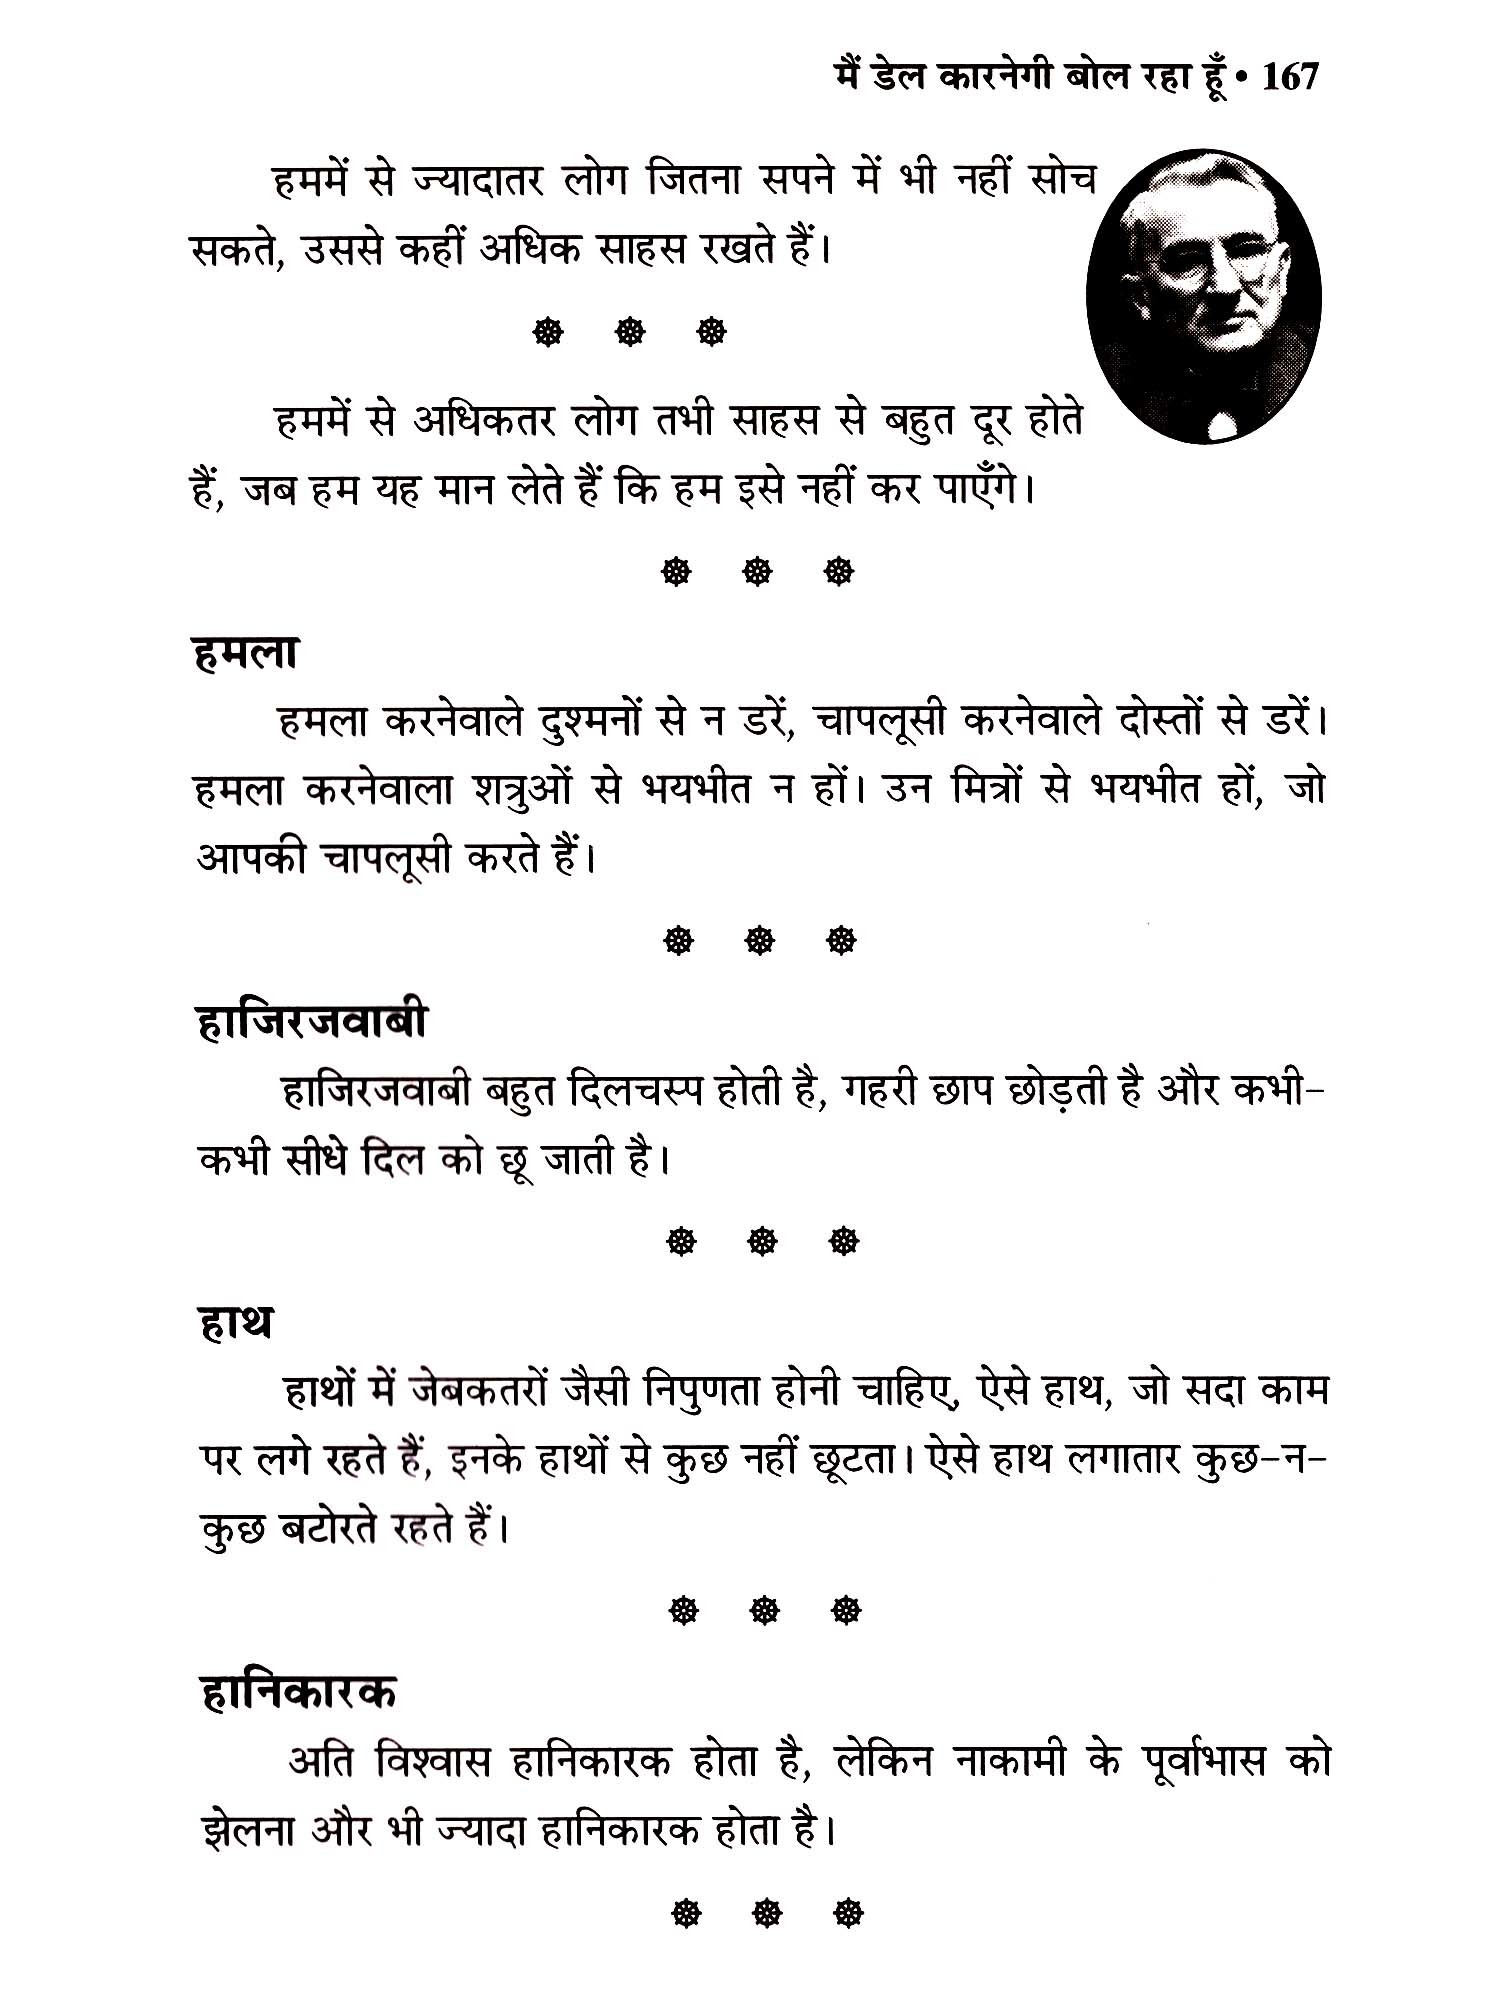 मैं डेल कारनेगी बोल रहा हूँ • 167
हममें से ज्यादातर लोग जितना सपने में भी नहीं सोच
सकते, उससे कहीं अधिक साहस रखते हैं।
हममें से अधिकतर लोग तभी साहस से बहुत दूर होते
हैं, जब हम यह मान लेते हैं कि हम इसे नहीं कर पाएँगे।
हमला
हमला करनेवाले दुश्मनों से न डरें, चापलूसी करनेवाले दोस्तों से डरें।
हमला करनेवाला शत्रुओं से भयभीत न हों। उन मित्रों से भयभीत हों, जो
आपकी चापलूसी करते हैं।
हाजिरजवाबी
हाजिरजवाबी बहुत दिलचस्प होती है, गहरी छाप छोड़ती है और कभी-
कभी सीधे दिल को छू जाती है।
हाथ
हाथों में जेबकतरों जैसी निपुणता होनी चाहिए, ऐसे हाथ, जो सदा काम
पर लगे रहते हैं, इनके हाथों से कुछ नहीं छूटता। ऐसे हाथ लगातार कुछ-न-
कुछ बटोरते रहते हैं।
हानिकारक
अति विश्वास हानिकारक होता है, लेकिन नाकामी के पूर्वाभास को
झेलना और भी ज्यादा हानिकारक होता है।